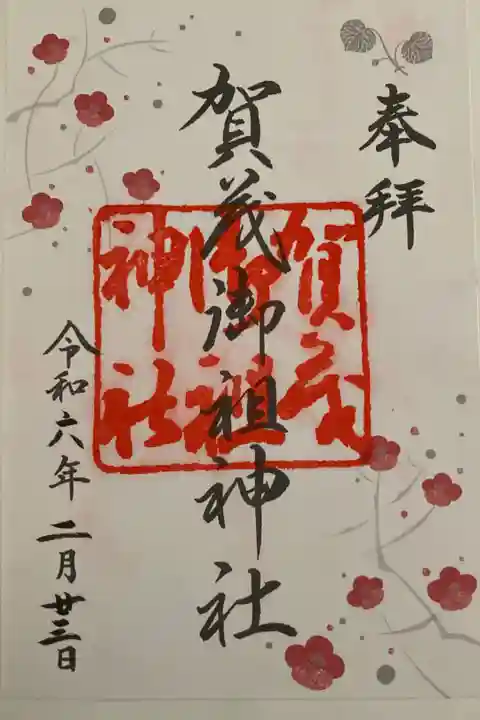 奉拝
賀茂御祖神社
賀茂
御祖
神社
令和六年二月廿三日